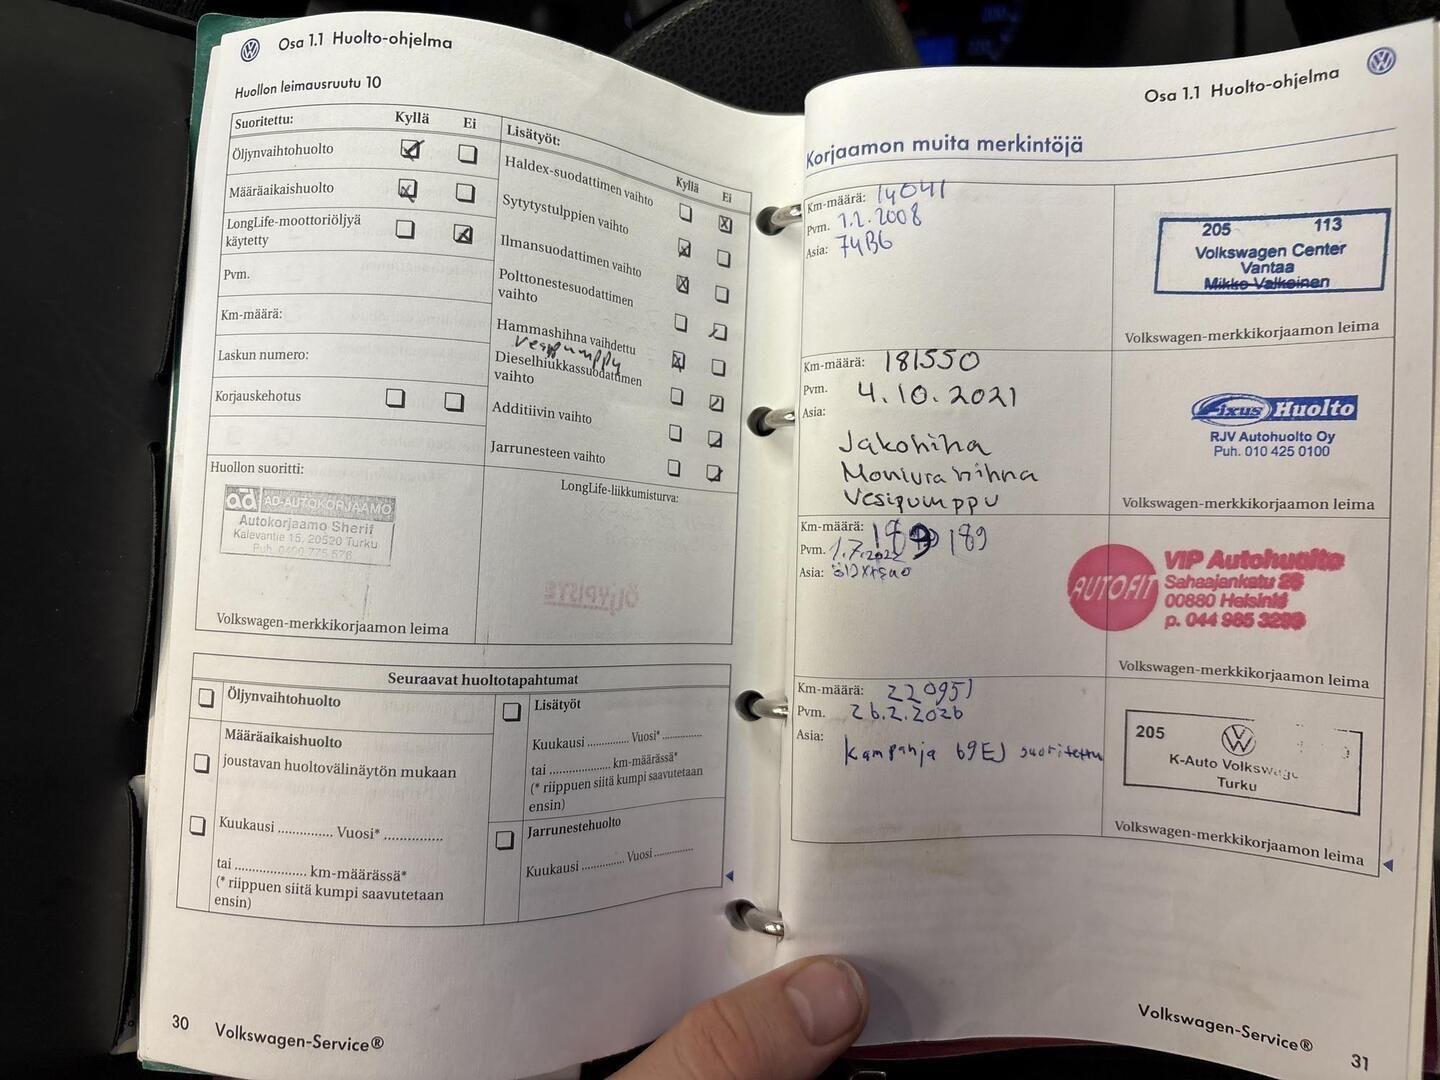 Osa 1.1 Huolto-ohjelma
Huollon leimausruutu 10
Suoritettu:
Kyllä
Ei
Öljynvaihtohuolto
Määräaikaishuolto
LongLife-moottoriöljyä
käytetty
Pvm.
Km-määrä:
Laskun numero:
Korjauskehotus
Huollon suoritti:
ad AD-AUTOKORJAAMO
Autokorjaamo Sherif
Kalevantie 15, 20520 Turku
Puh. 0400 775 576
Volkswagen-merkkikorjaamon leima
Lisätyöt:
Kyllä
Ei
Haldex-suodattimen vaihto
Sytytystulppien vaihto
Ilmansuodattimen vaihto
Polttonestesuodattimen
vaihto
Hammashihna vaihdettu
Vesipumppu
Dieselhiukkassuodattimen
vaihto
Additiivin vaihto
Jarrunesteen vaihto
LongLife-liikkumisturva:
Seuraavat huoltotapahtumat
Öljynvaihtohuolto
Määräaikaishuolto
joustavan huoltovälinäytön mukaan
Kuukausi .............. Vuosi* ...............
tai .................. km-määrässä*
(* riippuen siitä kumpi saavutetaan
ensin)
Lisätyöt
Kuukausi ........... Vuosi* ...........
tai ................ km-määrässä*
(* riippuen siitä kumpi saavutetaan
ensin)
Jarrunestehuolto
Kuukausi ........... Vuosi ...........
30 Volkswagen-Service®
Osa 1.1 Huolto-ohjelma
Korjaamon muita merkintöjä
Km-määrä: 14041
Pvm. 1.2.2008
Asia: 74B6
205 113
Volkswagen Center
Vantaa
Mikko Valkeinen
Volkswagen-merkkikorjaamon leima
Km-määrä: 181550
Pvm. 4.10.2021
Asia:
Jakohihna
Moniurahihna
Vesipumppu
Fixus Huolto
RJV Autohuolto Oy
Puh. 010 425 0100
Volkswagen-merkkikorjaamon leima
Km-määrä: 189
Pvm. 1.7.2022
Asia:
AUTOFIT
VIP Autohuolto
Sahaajankatu 26
00880 Helsinki
p. 044 985 3299
Volkswagen-merkkikorjaamon leima
Km-määrä: 220951
Pvm. 26.2.2026
Asia:
Kampanja 69EJ suoritettu
205
K-Auto Volkswage
Turku
Volkswagen-merkkikorjaamon leima
Volkswagen-Service®
31